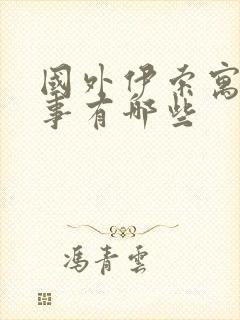 國外伊索寓
事有哪些
馮青雲